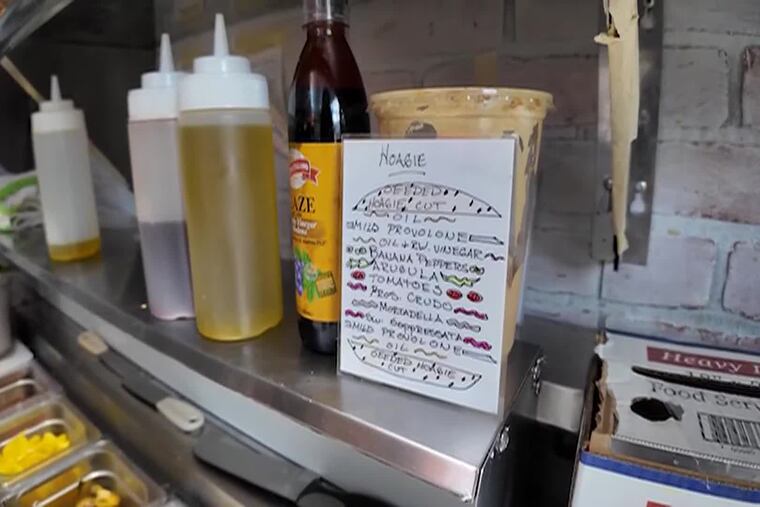 HOAGIE
SEEDED
HOAGIE CUT
OIL
MILD PROVOLONE
OIL + RW. VINEGAR
BANANA PEPPERS
ARUGULA
TOMATOES
PROS. CRUDO
MORTADELLA
SW. SOPPRESSATA
MILD PROVOLONE
OIL
SEEDED HOAGIE
CUT
AZE
Heavy
Food Serv